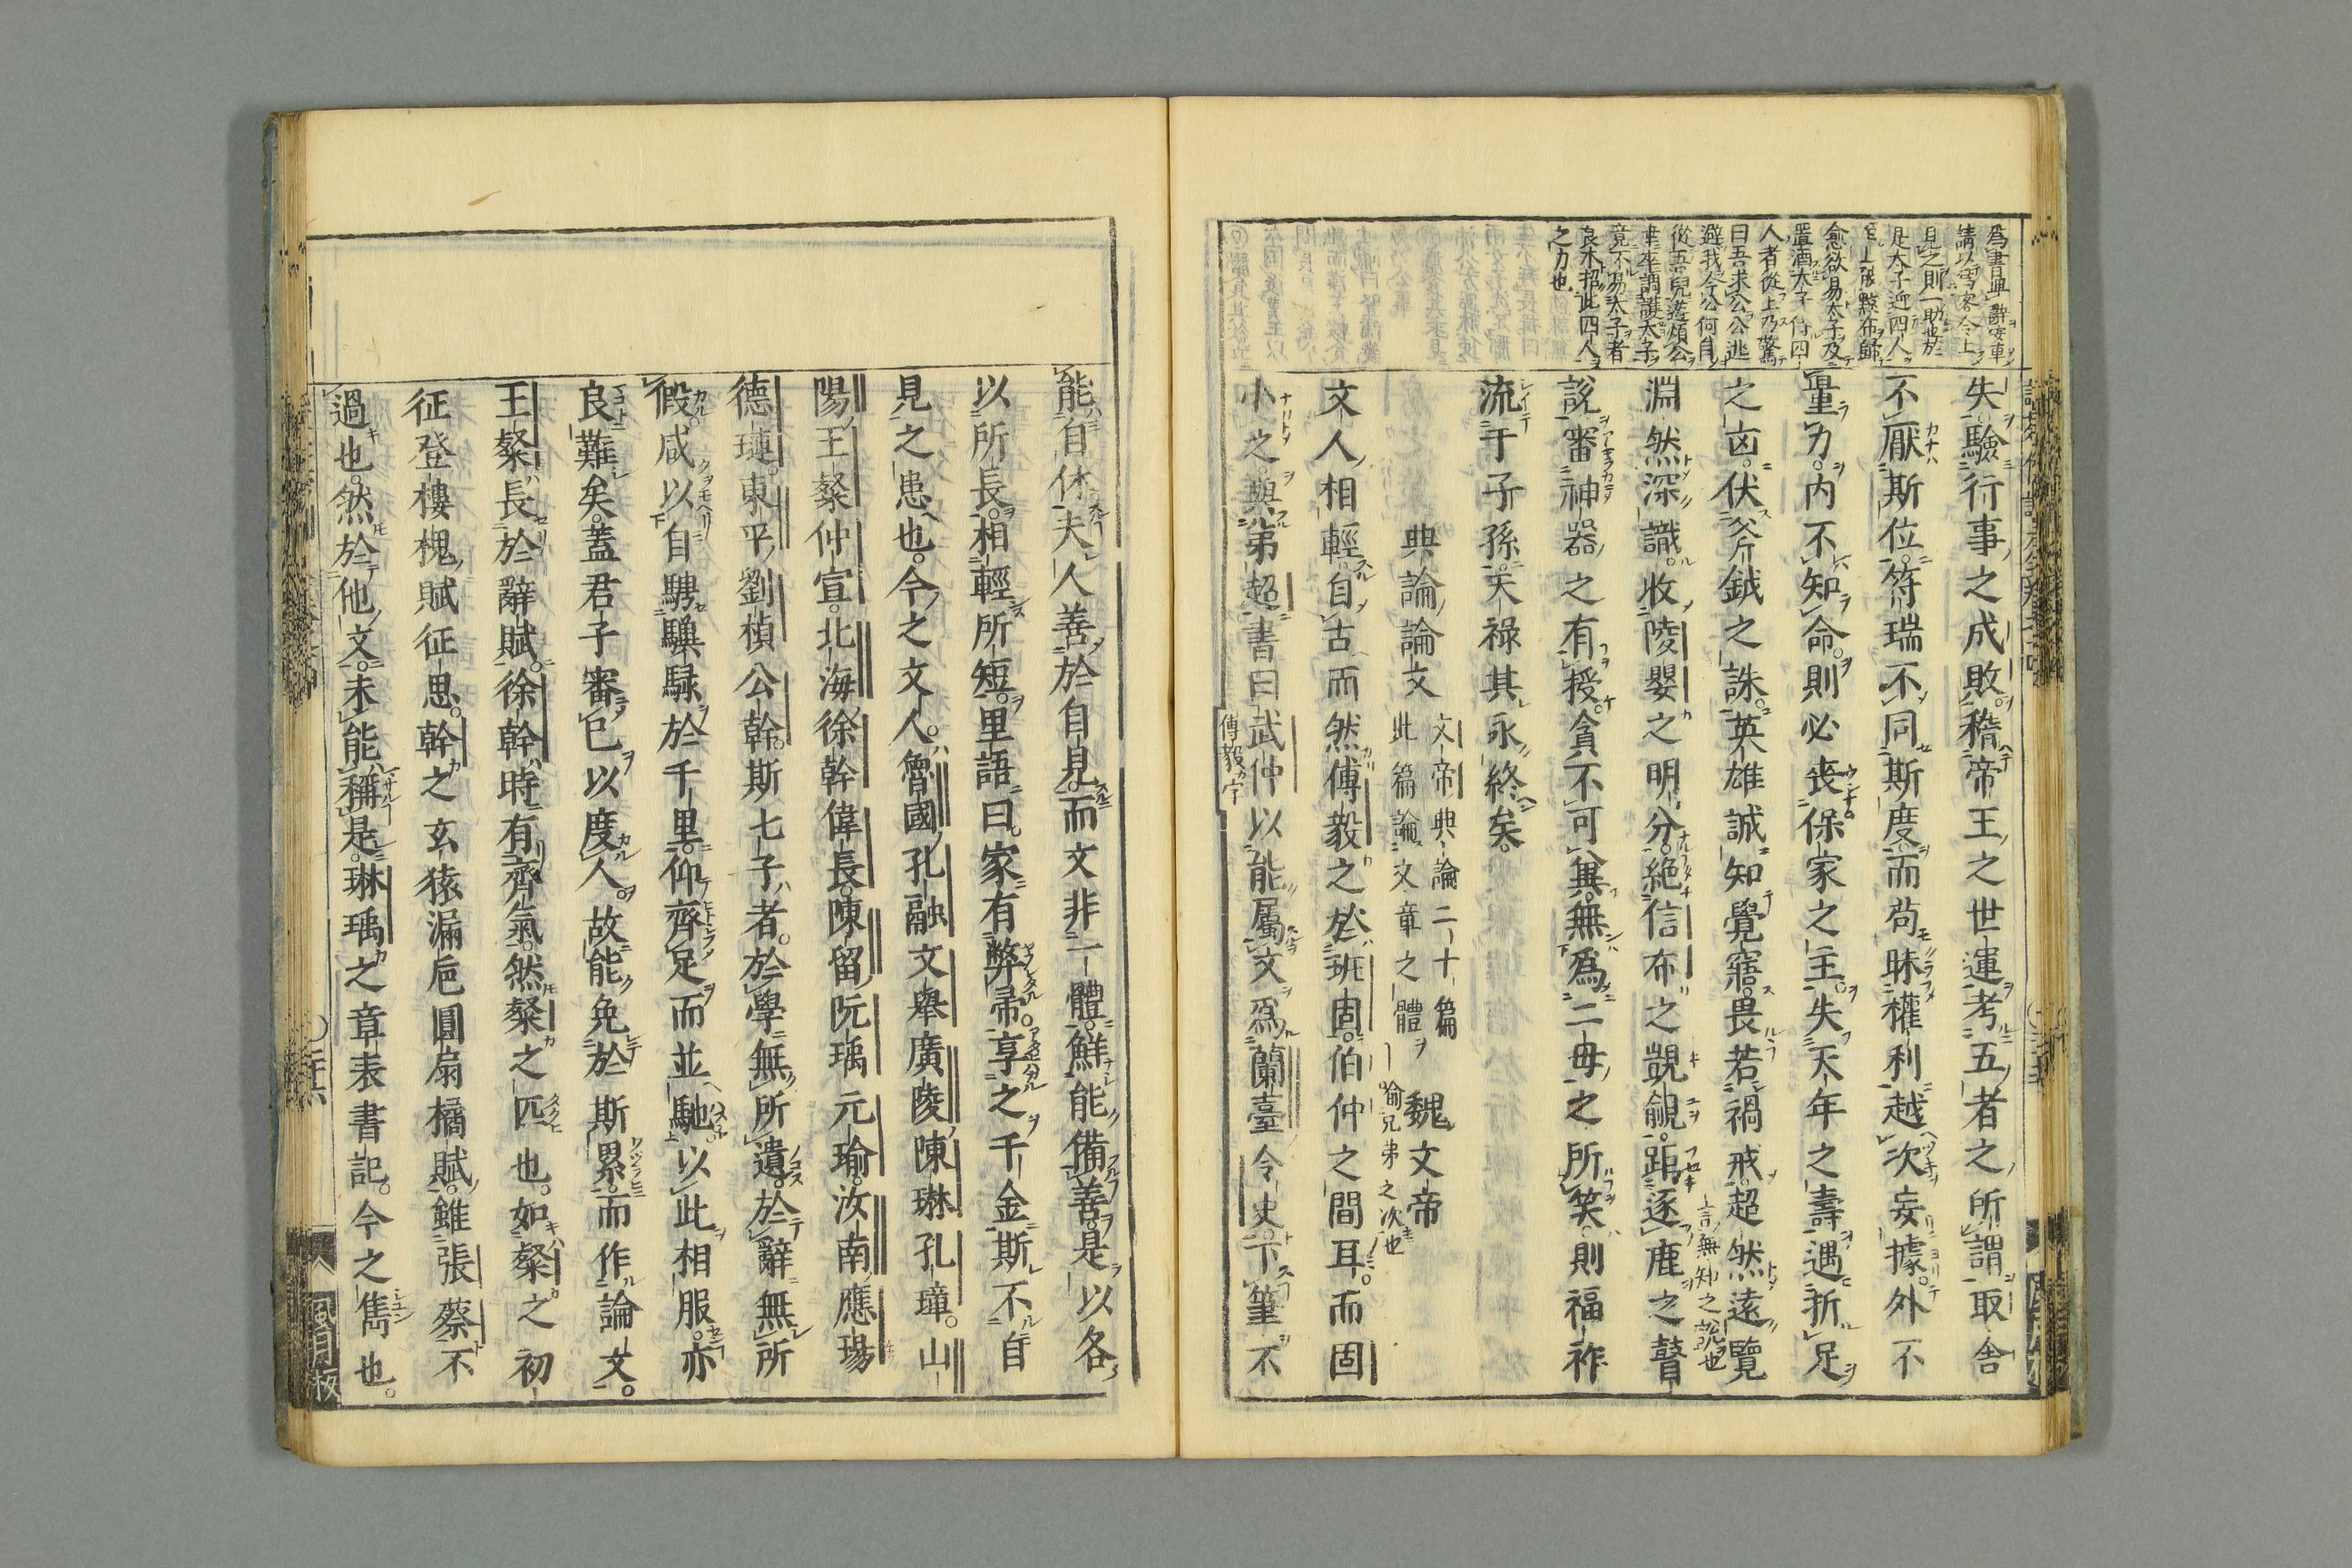 爲書卑辭安車
請以爲客令上
見之則一助也於
是太子迎四人
上破黥布歸
愈欲易太子及
置酒太子侍四
人者從上乃驚
曰吾求公公逃
避我今公何自
從吾兒遊煩公
卒調護太子
竟不易太子者
良本招此四人
之力也
失驗行事之成敗稽帝王之世運考五者之所謂取舍
不厭斯位符瑞不同斯度而苟昧權利越次妄據外不
量力內不知命則必喪保家之主失天年之壽遇折足
之凶伏斧鉞之誅英雄誠知覺寤畏若禍戒超然遠覽
言無知之說也
淵然深識收陵嬰之明分絕信布之覬覦距逐鹿之瞽
說審神器之有授貪不可冀無爲二母之所笑則福祚
流于子孫天祿其永終矣
典論論文
文帝典論二十篇
此篇論文章之體
魏文帝
喻兄弟之次也
文人相輕自古而然傅毅之於班固伯仲之間耳而固
小之與弟超書曰武仲以能屬文爲蘭臺令史下筆不
傅毅カ字
能自休夫人善於自見而文非一體鮮能備善是以各
以所長相輕所短里語曰家有弊帚享之千金斯不自
見之患也今之文人魯國孔融文舉廣陵陳琳孔璋山
陽王粲仲宣北海徐幹偉長陳留阮瑀元瑜汝南應瑒
德璉東平劉楨公幹斯七子者於學無所遺於辭無所
假咸以自騁驥騄於千里仰齊足而並馳以此相服亦
良難矣蓋君子審己以度人故能免於斯累而作論文
王粲長於辭賦徐幹時有齊氣然粲之匹也如粲之初
征登樓槐賦征思幹之玄猿漏巵圓扇橘賦雖張蔡不
過也然於他文未能稱是琳瑀之章表書記今之雋也